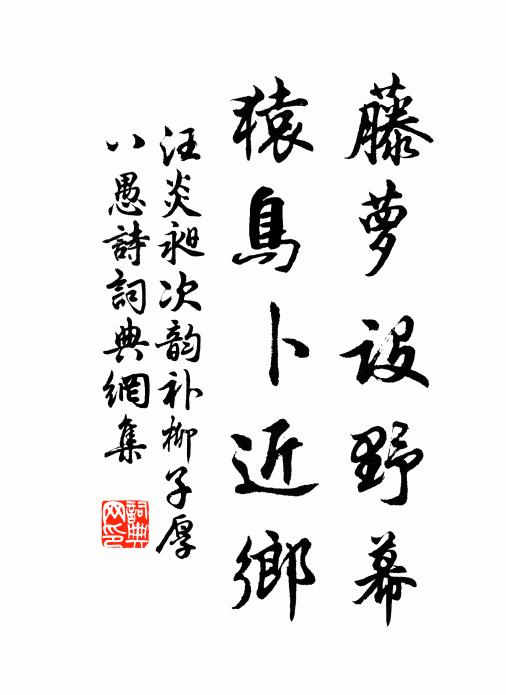 藤萝設野幕
猿鳥卜近鄉
汪炎昶次韵补柳子厚
八愚詩詞典網集
詞典网印